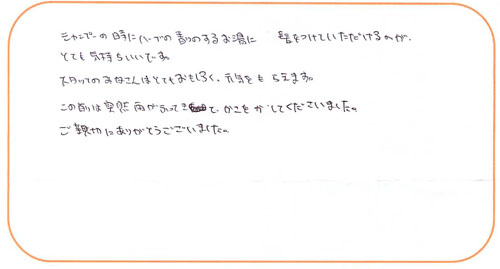 シャンプーの時にハーブの香りのするお湯に 髪をつけていただけるのが、
とても気持ちいいです。
スタッフのみなさんはとてもおもしろく、元気をもらえます。
この前は突然雨がふってきて、かさをかしてくださいました。
ご親切にありがとうございました。